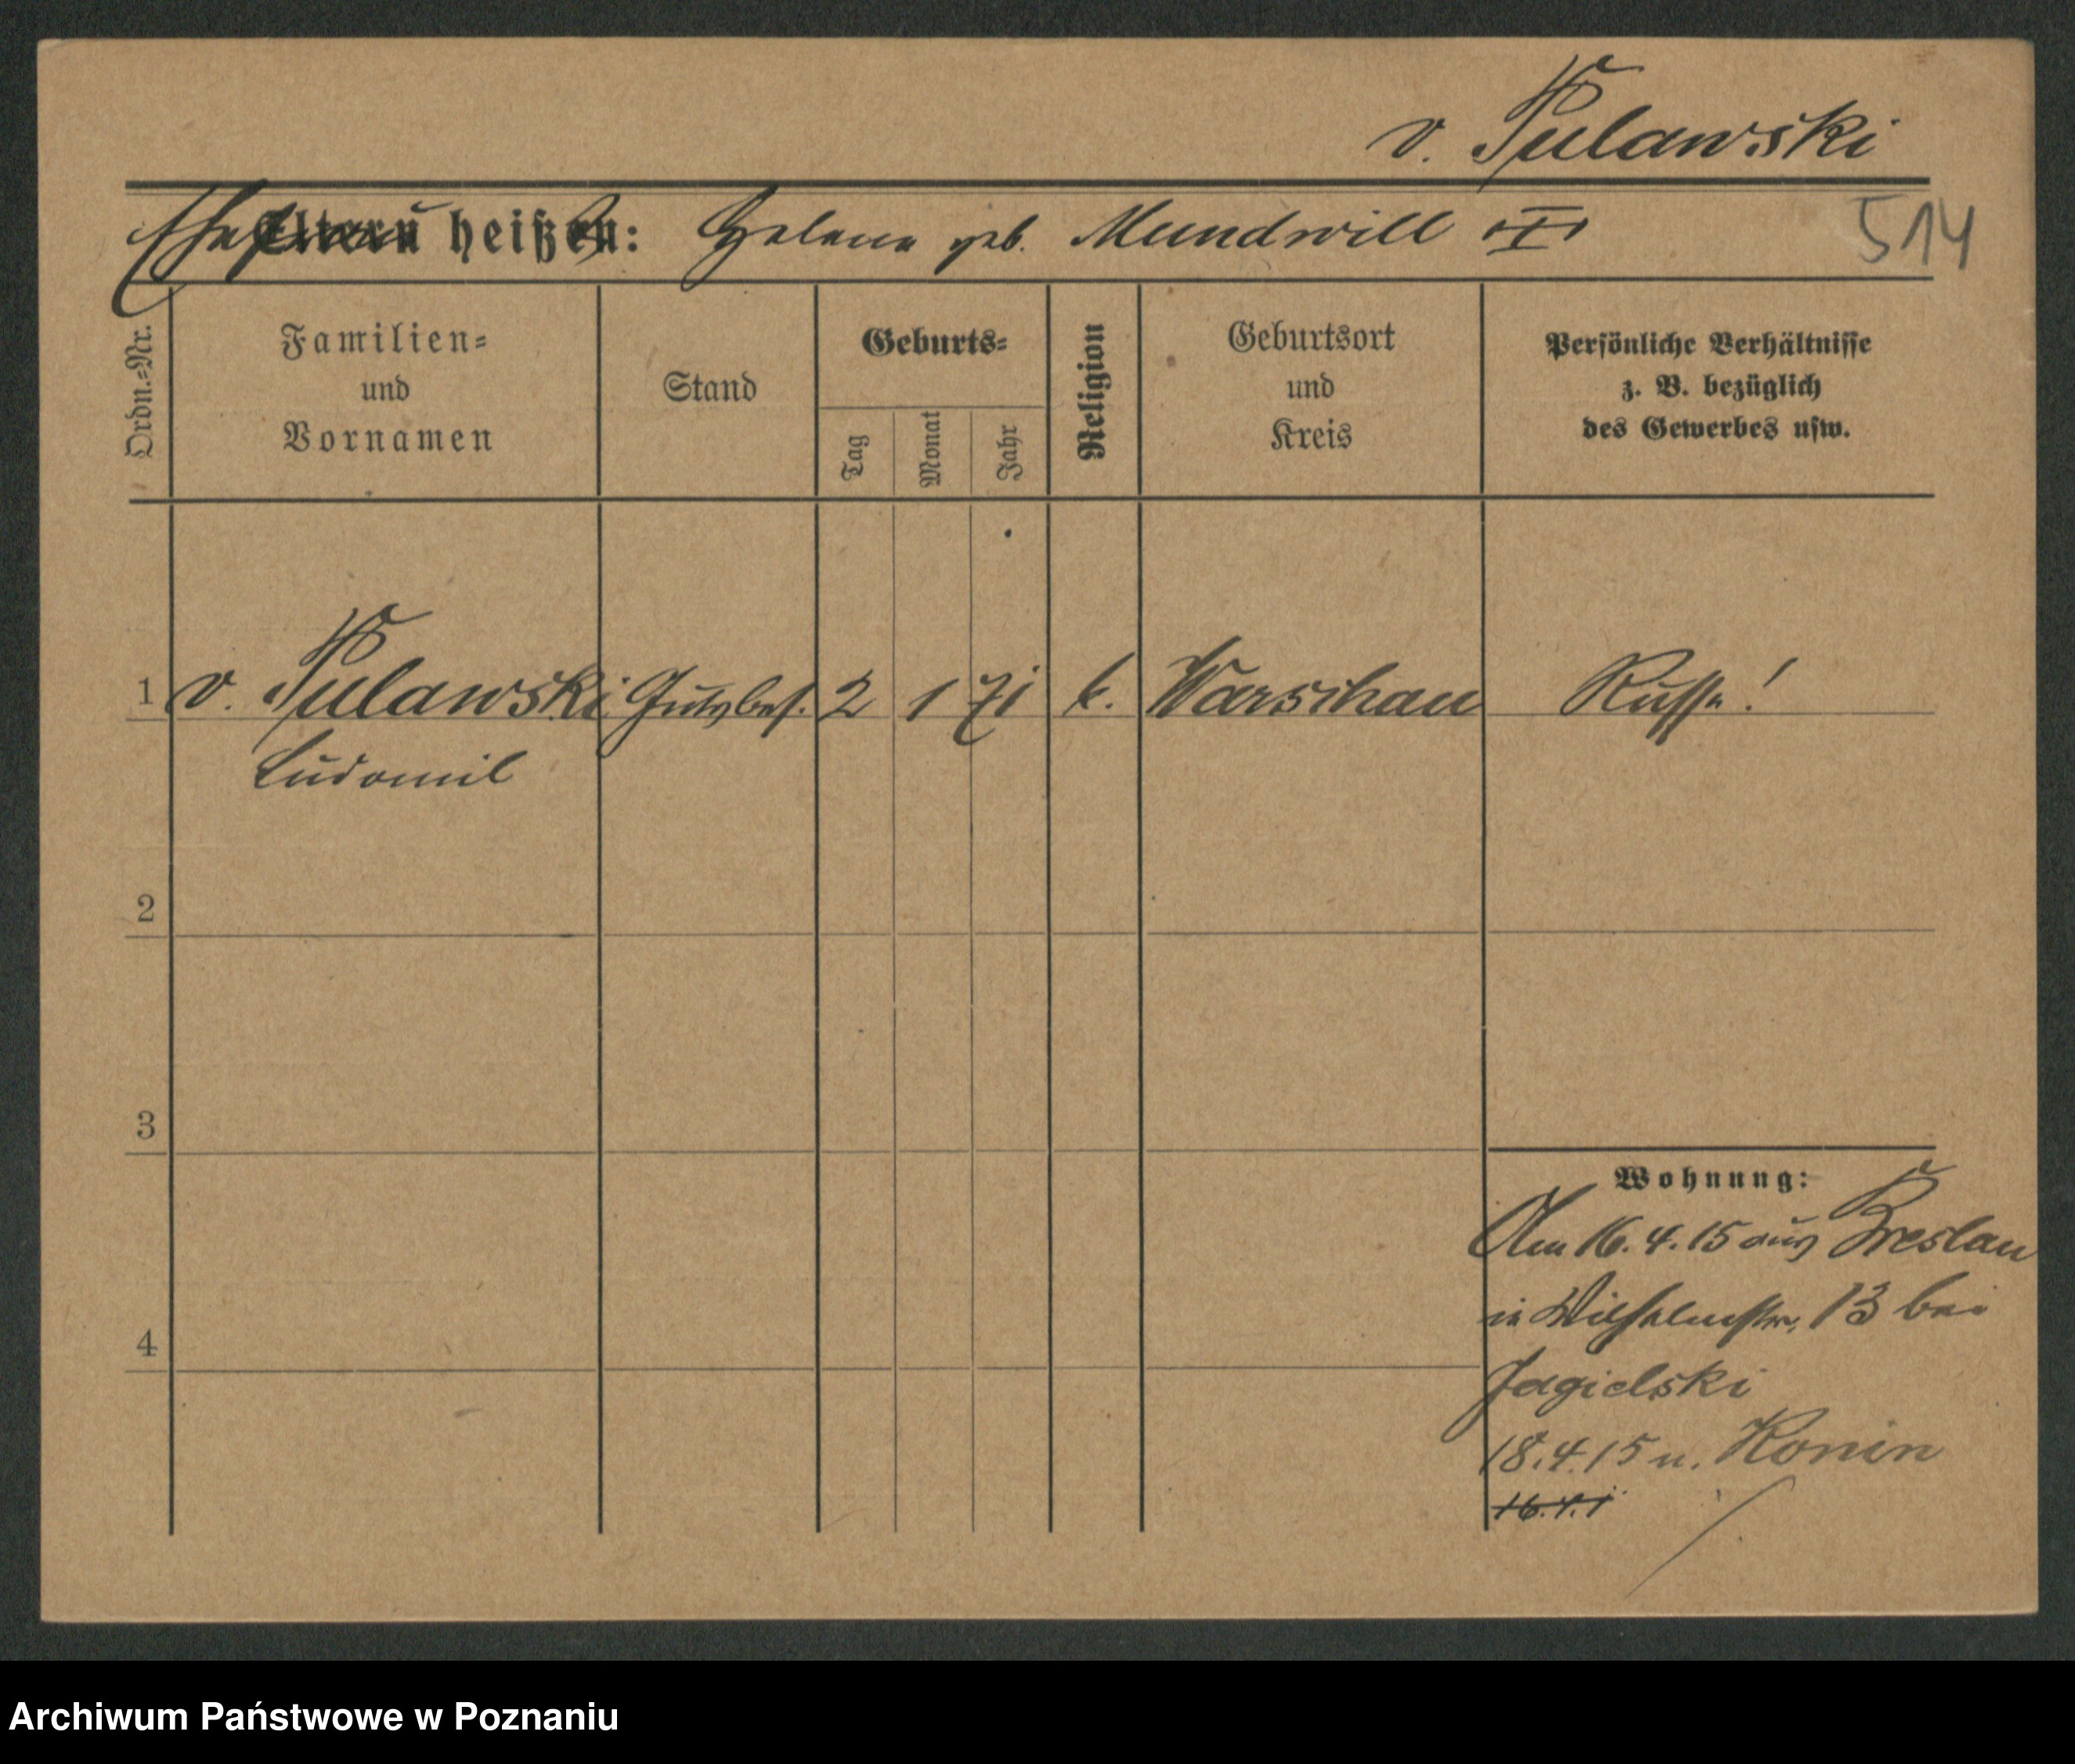 v. Pulawski
Ehefrau heißt: Helene geb. Mundwill I
514
Ordn.=Nr.
Familien=
und
Vornamen
Stand
Geburts=
Tag
Monat
Jahr
Religion
Geburtsort
und
Kreis
Persönliche Verhältnisse
z. B. bezüglich
des Gewerbes usw.
1 v. Pulawski Gutsbes. 2 1 71 k. Warschau Russe!
Ludomil
2
3
Wohnung:
Am 16.4.15 aus Breslau
in Wilhelmstr. 13 bei
4
Jagielski
18.4.15 n. Konin
16.4.1
Archiwum Państwowe w Poznaniu